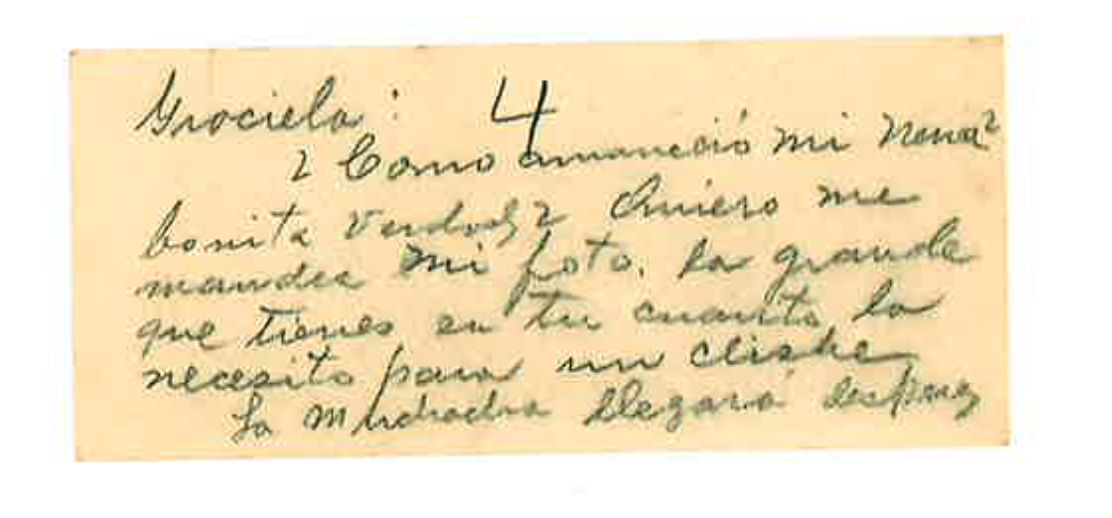 Graciela: 4
¿Como amaneció mi nena?
bonita verdad? Quiero me
mandes mi foto. La grande
que tienes en tu cuarto, la
necesito para un clishe
La muchacha llegará despues